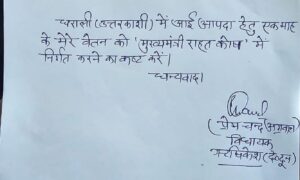 धराली (उत्तरकाशी) में आई आपदा हेतु एक माह
के मेरे वेतन को 'मुख्यमंत्री राहत कोष' में
निर्गत करने का कष्ट करें।
धन्यवाद।
(प्रेम चन्द अग्रवाल)
विधायक
ऋषिकेश (देहरादून)